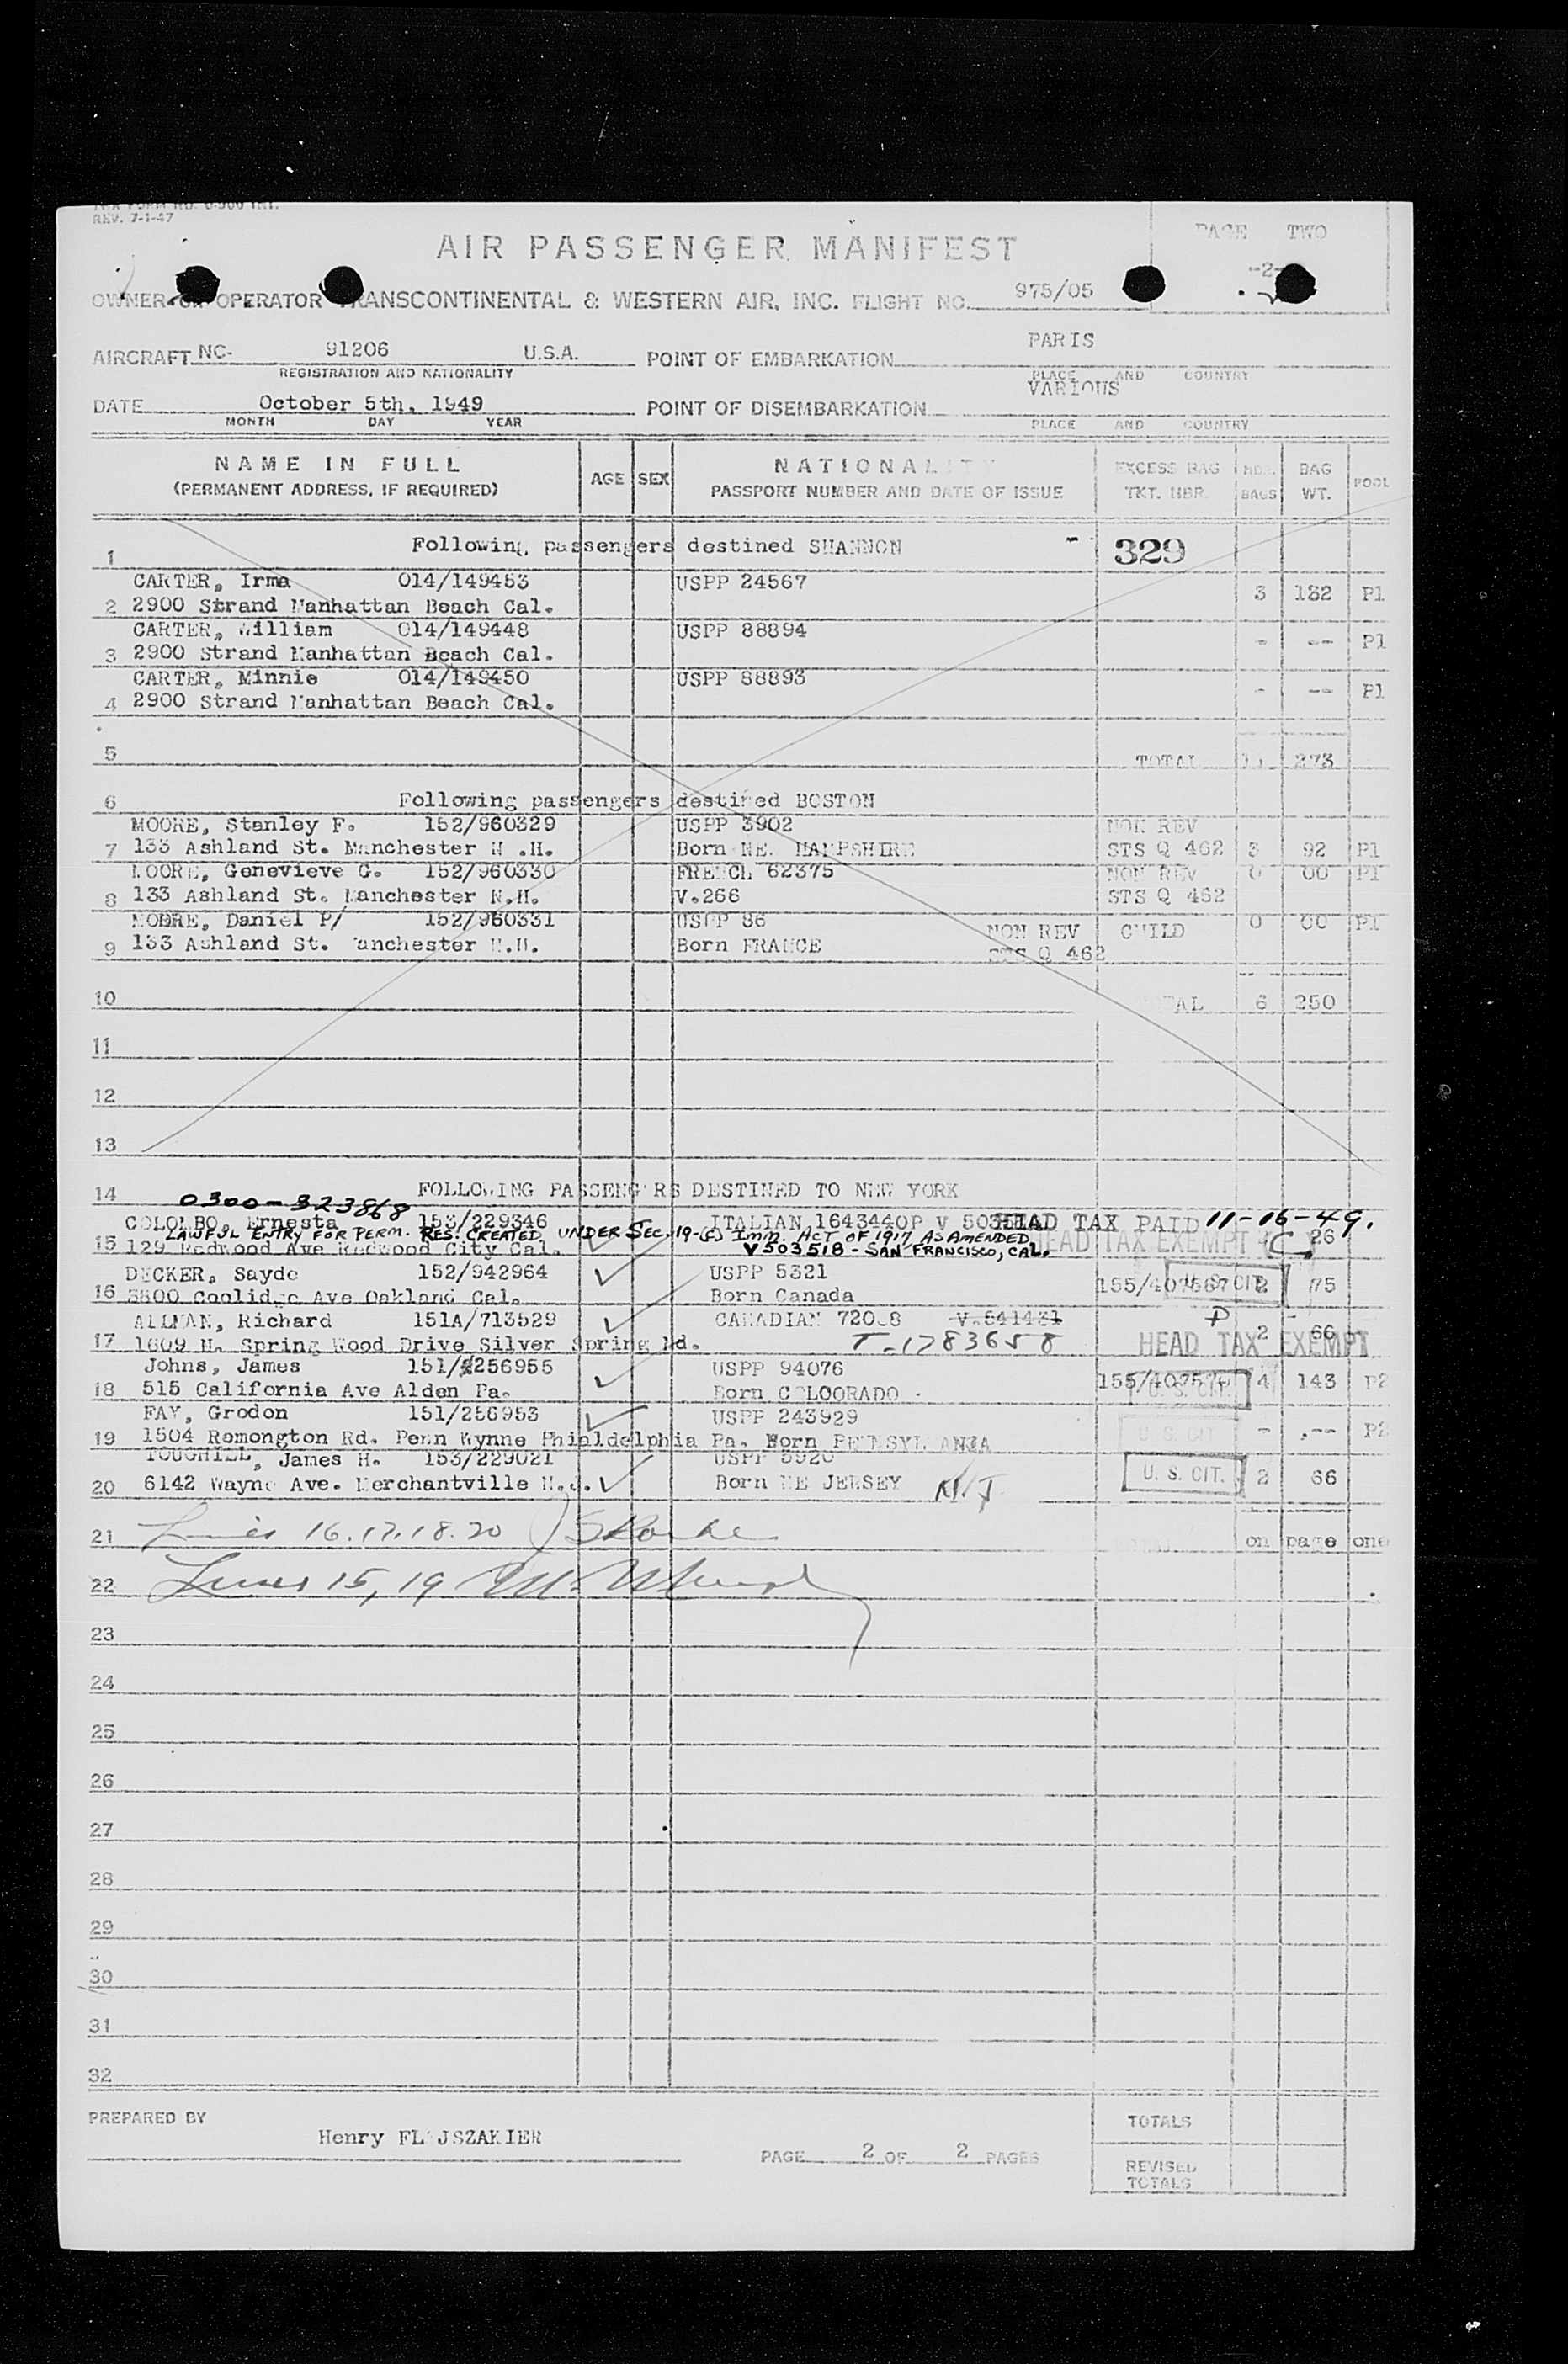 REV. 7-1-47
AIR PASSENGER MANIFEST
PAGE TWO
-2-
OWNER OPERATOR TRANSCONTINENTAL & WESTERN AIR, INC. FLIGHT NO. 975/05
AIRCRAFT NC- 91206 U.S.A. POINT OF EMBARKATION PARIS
REGISTRATION AND NATIONALITY PLACE AND COUNTRY
DATE October 5th, 1949 POINT OF DISEMBARKATION VARIOUS
MONTH DAY YEAR PLACE AND COUNTRY
NAME IN FULL AGE SEX NATIONALITY EXCESS BAG BAG POOL
(PERMANENT ADDRESS, IF REQUIRED) PASSPORT NUMBER AND DATE OF ISSUE TKT. NBR. BAGS WT.
1 Following passengers destined SHANNON - 329
CARTER, Irma 014/149453 USPP 24567 3 132 P1
2 2900 Strand Manhattan Beach Cal.
CARTER, William 014/149448 USPP 88894 - -- P1
3 2900 Strand Manhattan Beach Cal.
CARTER, Minnie 014/149450 USPP 88893 - -- P1
4 2900 Strand Manhattan Beach Cal.
5 TOTAL 273
6 Following passengers destined BOSTON
MOORE, Stanley F. 152/960329 USPP 3902 NON REV
7 133 Ashland St. Manchester N .H. Born NE. HAMPSHIRE STS Q 462 3 92 P1
MOORE, Genevieve G. 152/960330 FRENCH 62375 NON REV 0 00 P1
8 133 Ashland St. Manchester N.H. V.266 STS Q 462
MOORE, Daniel P/ 152/960331 USPP 86 NON REV CHILD 0 00 P1
9 133 Ashland St. Manchester N.H. Born FRANCE STS Q 462
10 TOTAL 6 250
11
12
13
14 FOLLOWING PASSENGERS DESTINED TO NEW YORK
0300-323868
COLOMBO, Ernesta 153/229346 ITALIAN 1643440P V HEAD TAX PAID 11-16-49.
LAWFUL ENTRY FOR PERM. RES. CREATED UNDER SEC. 19-(c) IMM. ACT OF 1917 AS AMENDED
15 129 Redwood Ave Redwood City Cal. V503518 - SAN FRANCISCO, CAL. HEAD TAX EXEMPT C. 26
DECKER, Sayde 152/942964 USPP 5321 155/407567 U. S. CIT. 2 75
16 3800 Coolidge Ave Oakland Cal. Born Canada
ALLMAN, Richard 151A/713529 CANADIAN V.541431 P 2 66
17 1609 N. Spring Wood Drive Silver Spring Md. T-1783658 HEAD TAX EXEMPT
Johns, James 151/256955 USPP 94076 U. S. CIT. 4 143 P2
18 515 California Ave Alden Pa. Born COLOORADO
FAY, Grodon 151/256953 USPP 243929 U. S. CIT - -- P2
19 1504 Remongton Rd. Penn Wynne Phialdelphia Pa. Born PENNSYLVANIA
TOUGHILL, James H. 153/229021 USPP 5920 U. S. CIT. 2 66
20 6142 Wayne Ave. Merchantville N.J. Born NE JERSEY N.J
21 Lines 16.17.18.20 on page one
22 Lines 15, 19
23
24
25
26
27
28
29
30
31
32
PREPARED BY Henry PAGE 2 OF 2 PAGES
TOTALS
REVISED TOTALS